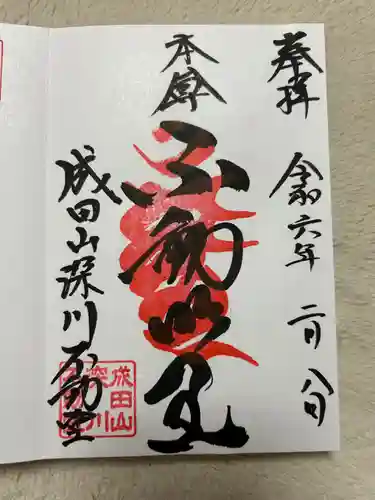 奉拝
令和六年二月八日
本尊
不動明王
成田山深川不動堂
成田山
深川